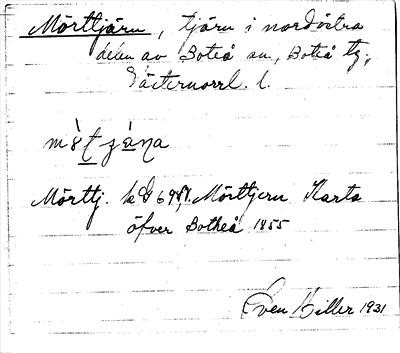 Mörttjärn, tjärn i nordöstra
delen av Boteå sn, Boteå tg.,
Västernorrl. l.
Mörttj. Mörttjern Karta
öfver Botheå 1855
Sven Hiller 1931